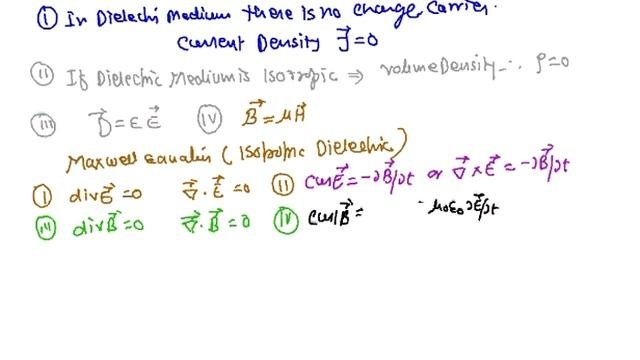 (i) In Dielectri Medium there is no charge carrier.
Current Density J⃗=0
(ii) If Dielectric Medium is Isotropic ⇒ volume Density ∴ ρ=0
(iii) D⃗=εE⃗ (iv) B⃗=μH⃗
Maxwell equatin (Isotropic Dielectric)
(i) divE⃗=0 ∇⃗.E⃗=0 (ii) curlE⃗=-∂B⃗/∂t or ∇⃗×E⃗=-∂B⃗/∂t
(iii) divB⃗=0 ∇⃗.B⃗=0 (iv) curlB⃗= μ₀ε₀∂E⃗/∂t